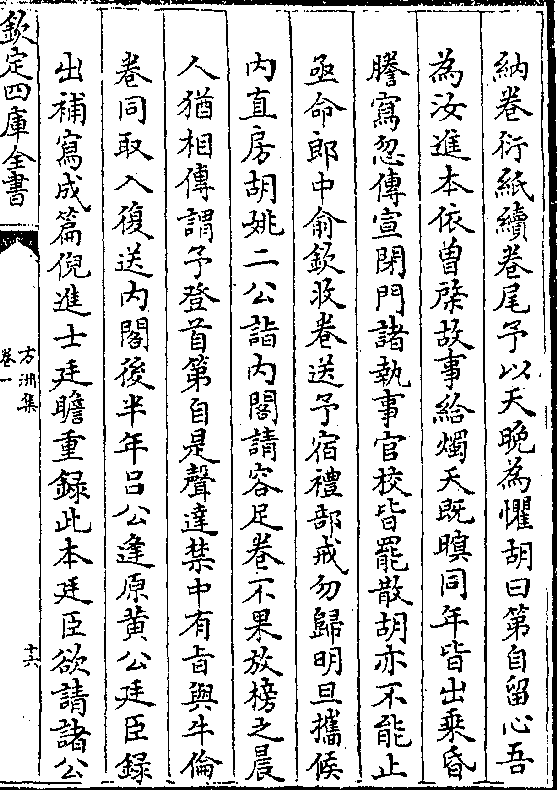 納卷衍紙續卷尾予以天晚為懼胡曰第自留心吾
為汝進本依曾棨故事給燭天既暝同年皆出乘昏
謄寫忽傳宣閉門諸執事官校皆罷散胡亦不能止
亟命郎中俞欽收卷送予宿禮部戒勿歸明旦攜候
内直房胡姚二公詣内閣請容足卷不果放榜之晨
人猶相傳謂予登首第自是聲達禁中有旨與牛倫
卷同取入復送内閣後半年吕公逢原黄公廷臣録
出補寫成篇倪進士廷瞻重録此本廷臣欲請諸公
欽定四庫全書
方洲集
卷一
十六